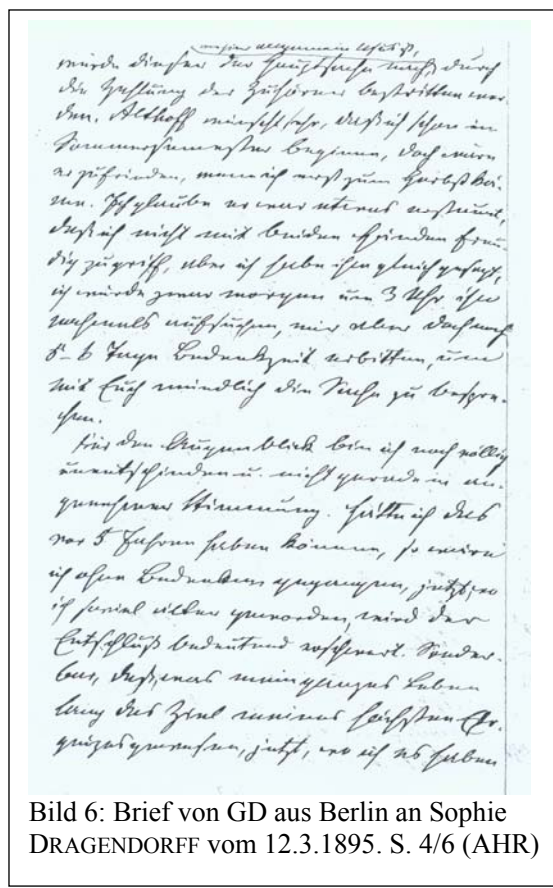 wie hier allgemein üblich ist,
würde dieser der Hauptsache nach, durch
die Zahlung der Zuhörer bestritten wer-
den. Althoff wünscht sehr, daß ich schon im
Sommersemester beginne, doch wäre
er zufrieden, wenn ich erst zum Herbst kä-
me. Ich glaube er war etwas erstaunt,
daß ich nicht mit beiden Händen freu-
dig zugriff, aber ich habe ihm gleich gesagt,
ich würde zwar morgen um 3 Uhr ihn
nochmals aufsuchen, mir aber doch noch
5-6 Tage Bedenkzeit erbitten, um
mit Euch mündlich die Sache zu bespre-
chen.
Für den Augenblick bin ich noch völlig
unentschieden u. nicht gerade in an-
genehmer Stimmung. Hätte ich das
vor 5 Jahren haben können, so wäre
ich ohne Bedenken gegangen, jetzt, wo
ich soviel älter geworden, wird der
Entschluß bedeutend erschwert. Sonder-
bar, daß, was mein ganzes Leben
lang das Ziel meines höchsten Ehr-
geizes gewesen, jetzt, wo ich es haben
Bild 6: Brief von GD aus Berlin an Sophie
DRAGENDORFF vom 12.3.1895. S. 4/6 (AHR)